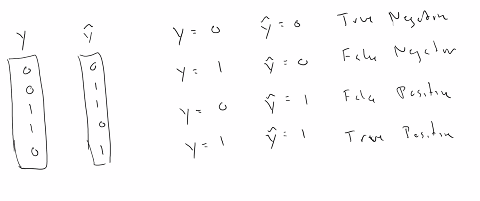 y ŷ
0 0
0 1
1 1
1 0
0 1
y = 0 ŷ = 0 True Negative
y = 1 ŷ = 0 False Negative
y = 0 ŷ = 1 False Positive
y = 1 ŷ = 1 True Positive